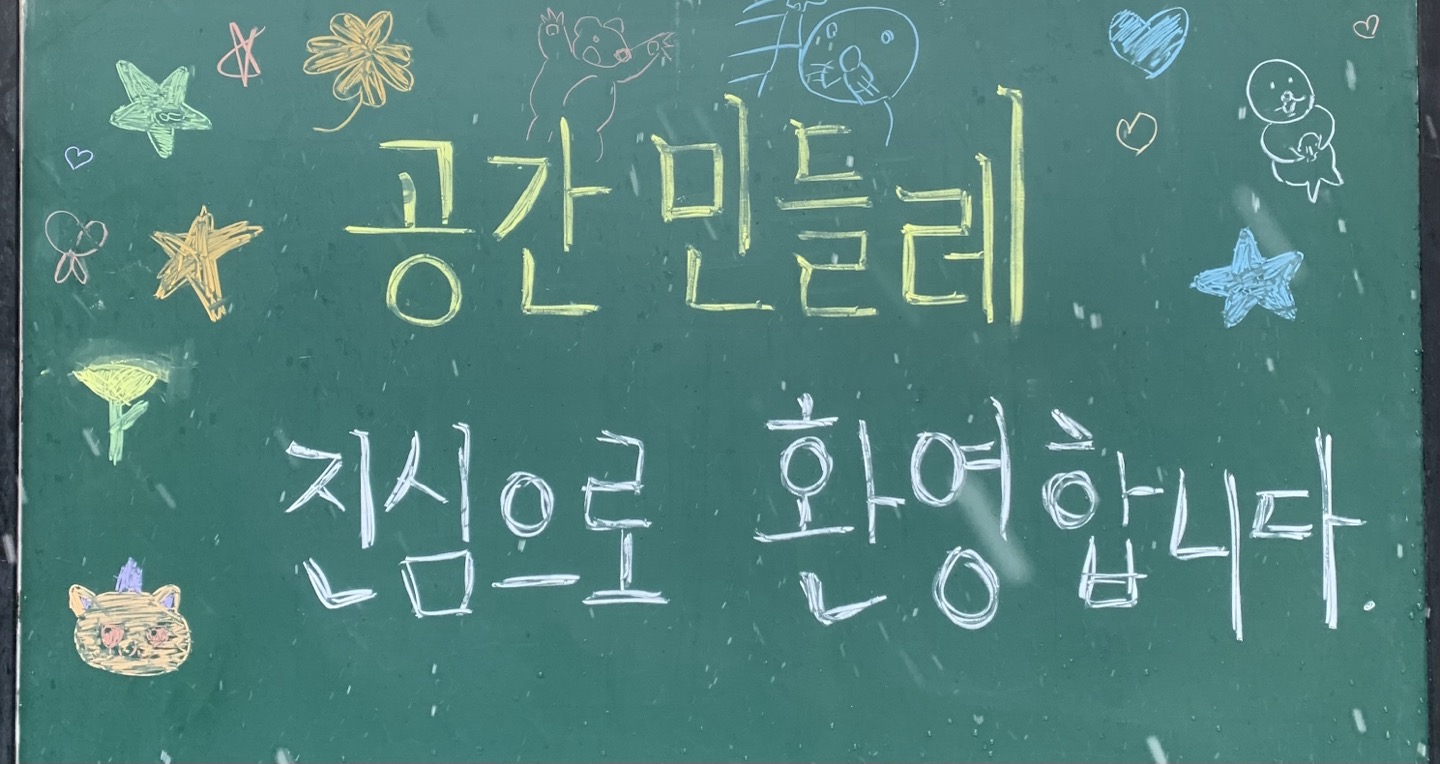 공간 민들레
진심으로 환영합니다.